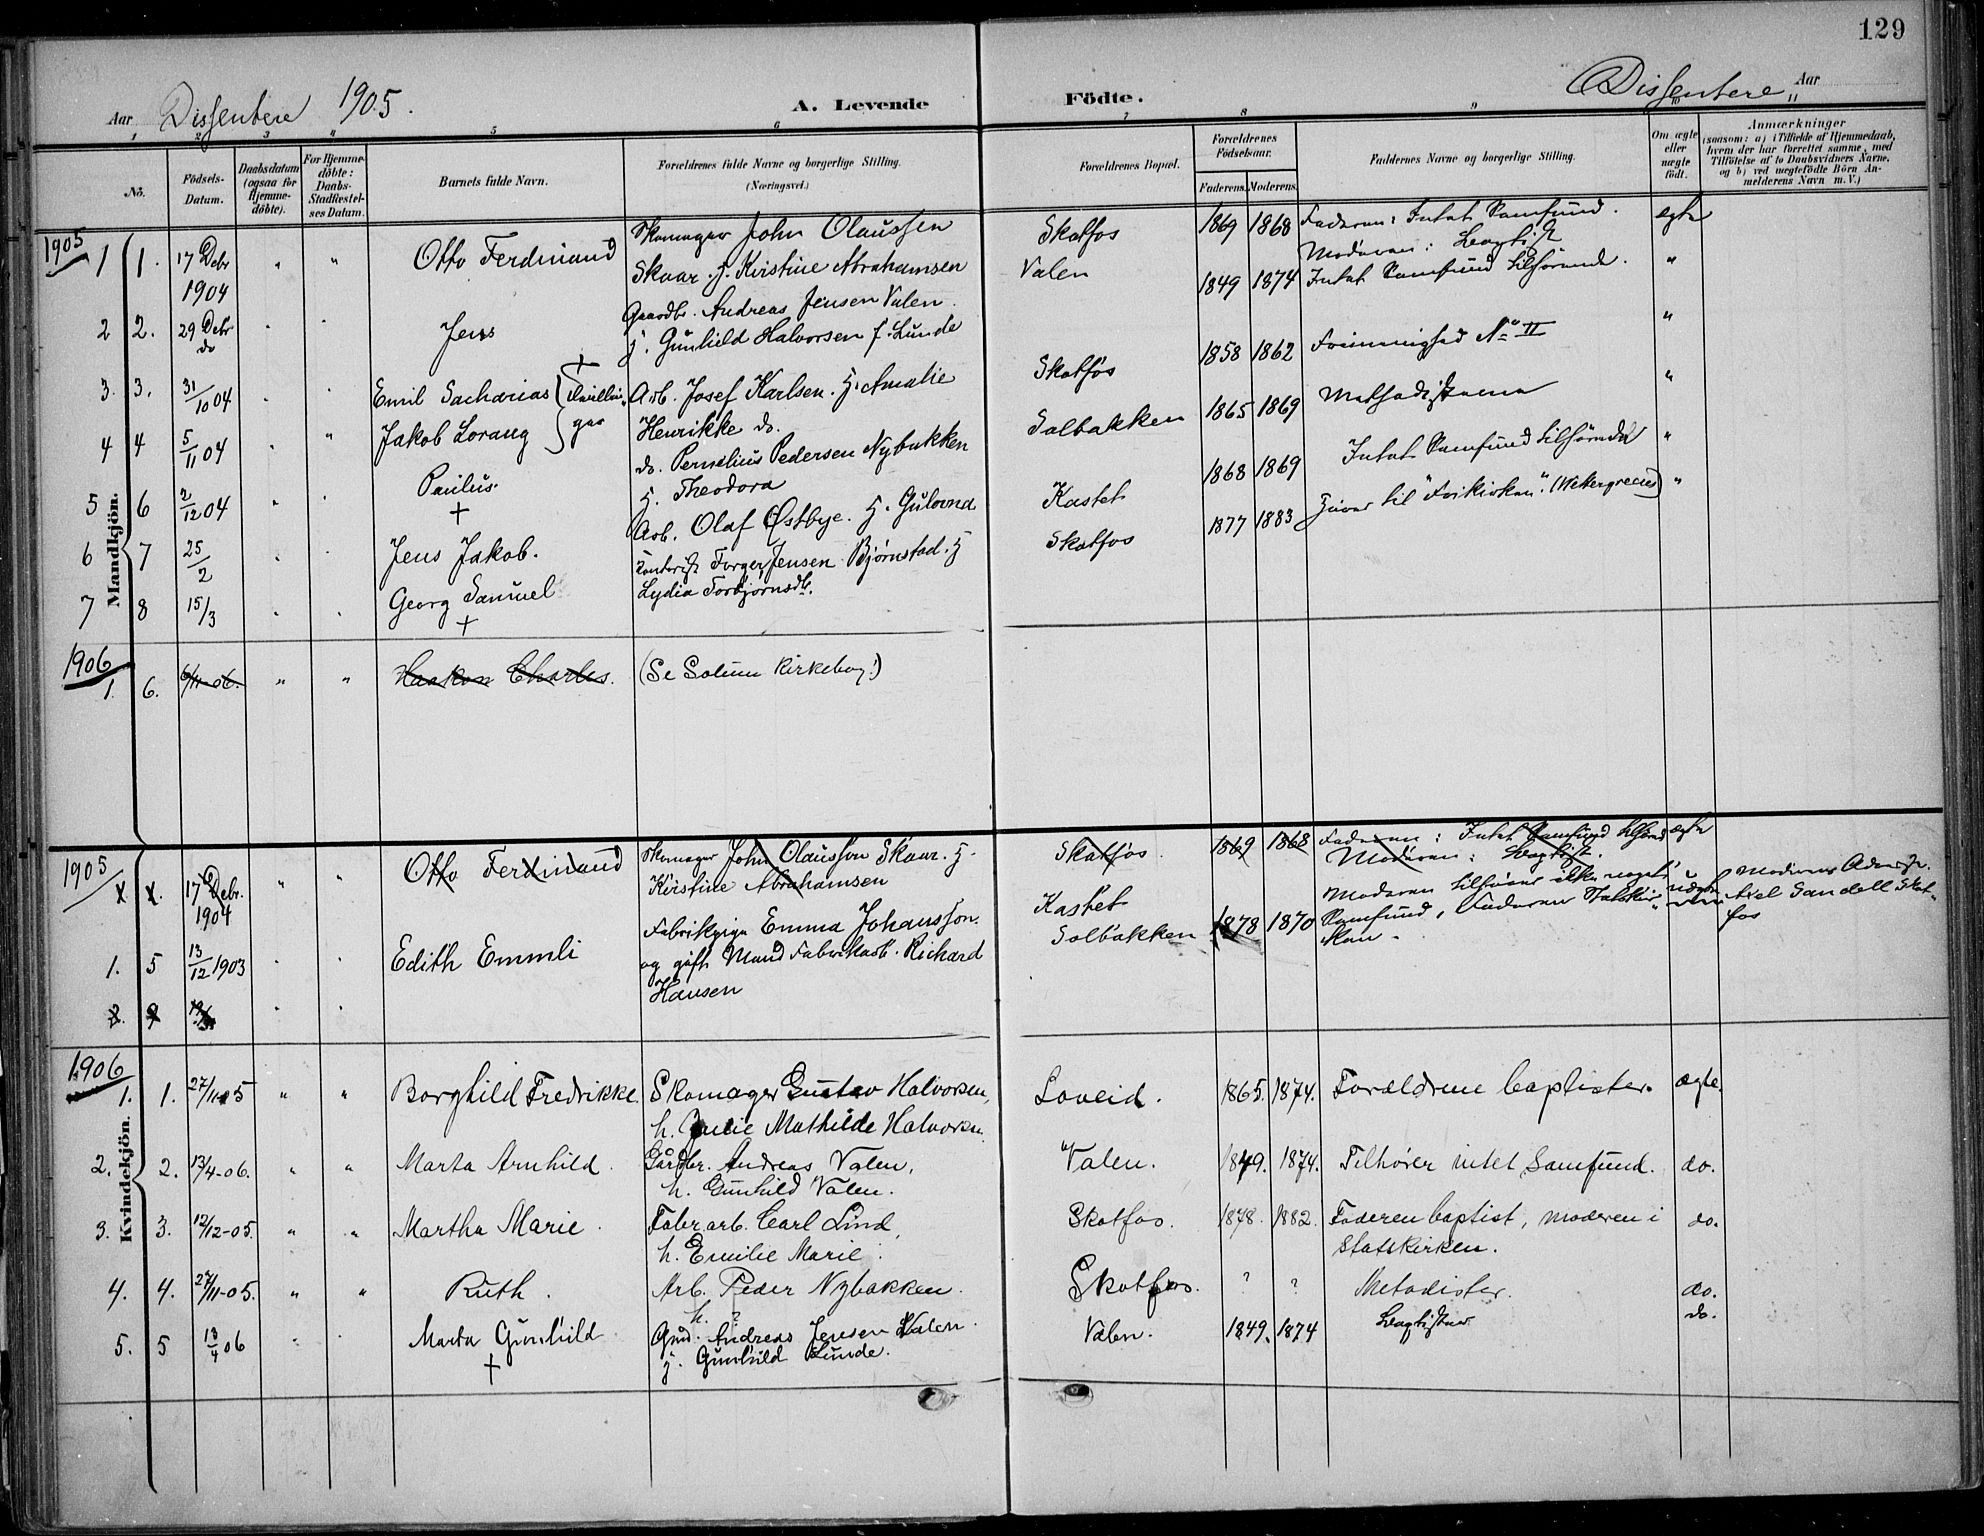 129
Aar Dissentere 1905. A. Levende Födte. Dissentere Aar
1 2 3 4 5 6 7 8 9 10 11
Nö.
Födsels-Datum.
Daabsdatum (ogsaa for Hjemme-döbte).
For Hjemme-döbte: Daabs-Stadfæstel-ses Datum.
Barnets fulde Navn.
Forældrenes fulde Navne og borgerlige Stilling. (Næringsvei.)
Forældrenes Bopæl.
Forældrenes Födselsaar.
Faderens. Moderens.
Faddernes Navne og borgerlige Stilling.
Om ægte eller uægte födt.
Anmærkninger (saasom: a) i Tilfælde af Hjemmedaab, hvem der har forrettet samme, med Tilföielse af to Daabsvidners Navne, og b) ved uægtefödte Börn An-melderens Navn m. V.)
Mandkjön.
1905
1 1. 17 Debr 1904 " " Otto Ferdinand Skomager John Olaussen Skaar. f. Kirstine Abrahamsen Skotfos 1869 1868 Faderen: Intet Samfund. Moderen: Baptist egte
2 2. 29 Debr do Jens Gaardbr. Andreas Jensen Valen. H. Gunhild Halvorsen f. Lunde Valen 1849 1874 Intet Samfund tilhörende. "
3. 3. 31/10 04 Emil Sacharias Tvillin- Arb. Josef Karlsen. H. Amalie Skotfos 1858 1862 Frimenighed No II "
4 4 5/11 04 Jakob Lorang ger Henrikke do.
5 6 2/12 04 Paulus. + do. Pernelius Pedersen Nybakken H. Theodora Solbakken 1865 1869 Methodisterne "
6 7 25/2 Jens Jakob. Arb. Olaf Østbye. H. Gulovna Kastet 1868 1869 Intet Samfund tilhörende "
7 8 15/3 Georg Samuel + Torger Jensen Bjørnstad. H Lydia Torbjørnsdtr. Skotfos 1877 1883 til "Frikirken". "
1906
1. 6. 6/11-06. " " Haakon Charles. (Se Solum Kirkebog!)
Kvindekjön.
1905
x x. 17 Debr. 1904 " " Otto Ferdinand Skomager John Olausson Skaar. H. Kirstine Abrahamsen Skotfos. 1869 1868 Faderen: Intet Samfund Moderen: Baptist. ægte
1. 5 13/12 1903 Edith Emmli Fabrikpige Emma Johansson. og gift Mand Fabrikarb. Richard Hansen Kastet Solbakken 1878 1870 Moderen tilhører ikke noget Samfund, Faderen Moderens Axel Sandell Skot-fos
2. 9
1906
1. 1. 27/11 05 " " Borghild Fredrikke. Skomager Gustav Halvorsen, h. Julie Mathilde Halvorsen. Loveid. 1865. 1874. Forældrene baptister. ægte.
2. 2. 13/4-06. " " Marta Arnhild. Gårdbr. Andreas Valen, h. Gunhild Valen. Valen. 1849. 1874. Tilhører intet Samfund. do.
3. 3. 12/12-05. " " Martha Marie. Fabr arb. Carl Lind, h. Emilie Marie. Skotfos. 1878. 1882. Faderen baptist, moderen i Statskirken. do.
4. 4. 27/11-05. " " Ruth. Arb. Peder Nybakken. h. ? Skotfos. ? ? Metodister. do.
5. 5 13/4 06 Marta Gunhild + Gmd. Andreas Jensen Valen. H. Gunhild Lunde. Valen. 1849. 1874 Baptister do.